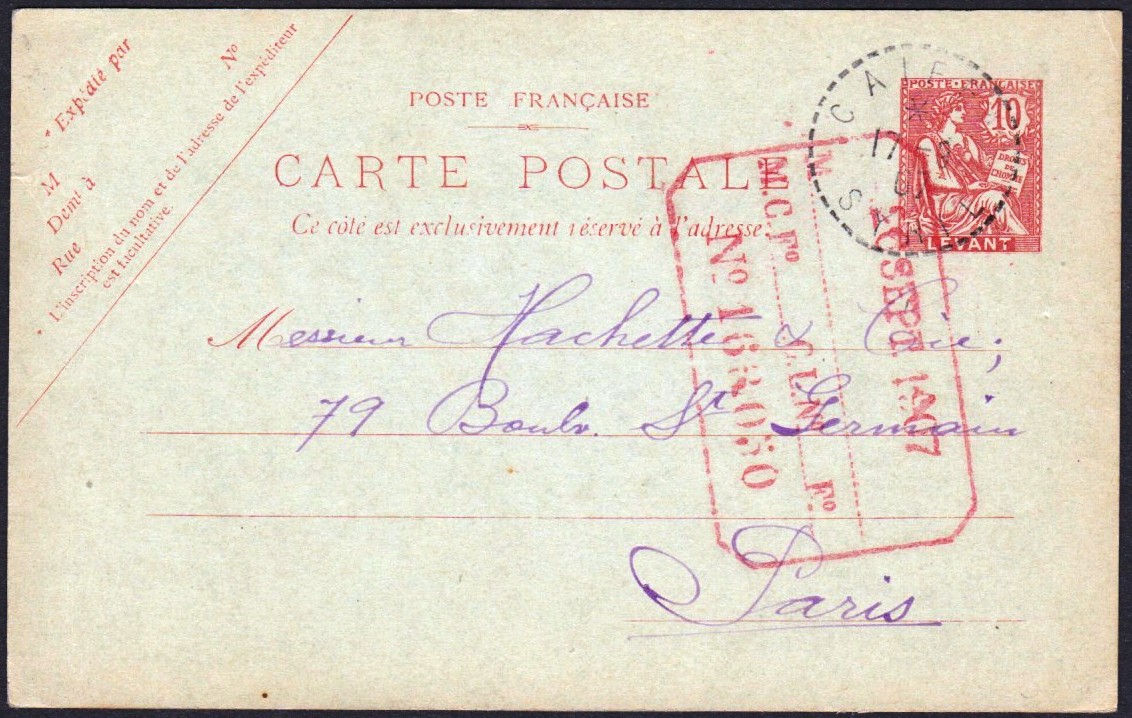 * Expédié par
M
Nº
Demt à
Rue
L'inscription du nom et de l'adresse de l'expéditeur
est facultative.
POSTE FRANÇAISE
CARTE POSTALE
Ce côté est exclusivement réservé à l'adresse.
POSTE FRANÇAISE
10
DROITS
DE
L'HOMME
LEVANT
CAIFFA
17
SYRIE
M
M.C. Fº
C.L.N. Fº
SEPT. 1907
Messieurs Hachette & Cie;
79 Boulv. St Germain
Paris